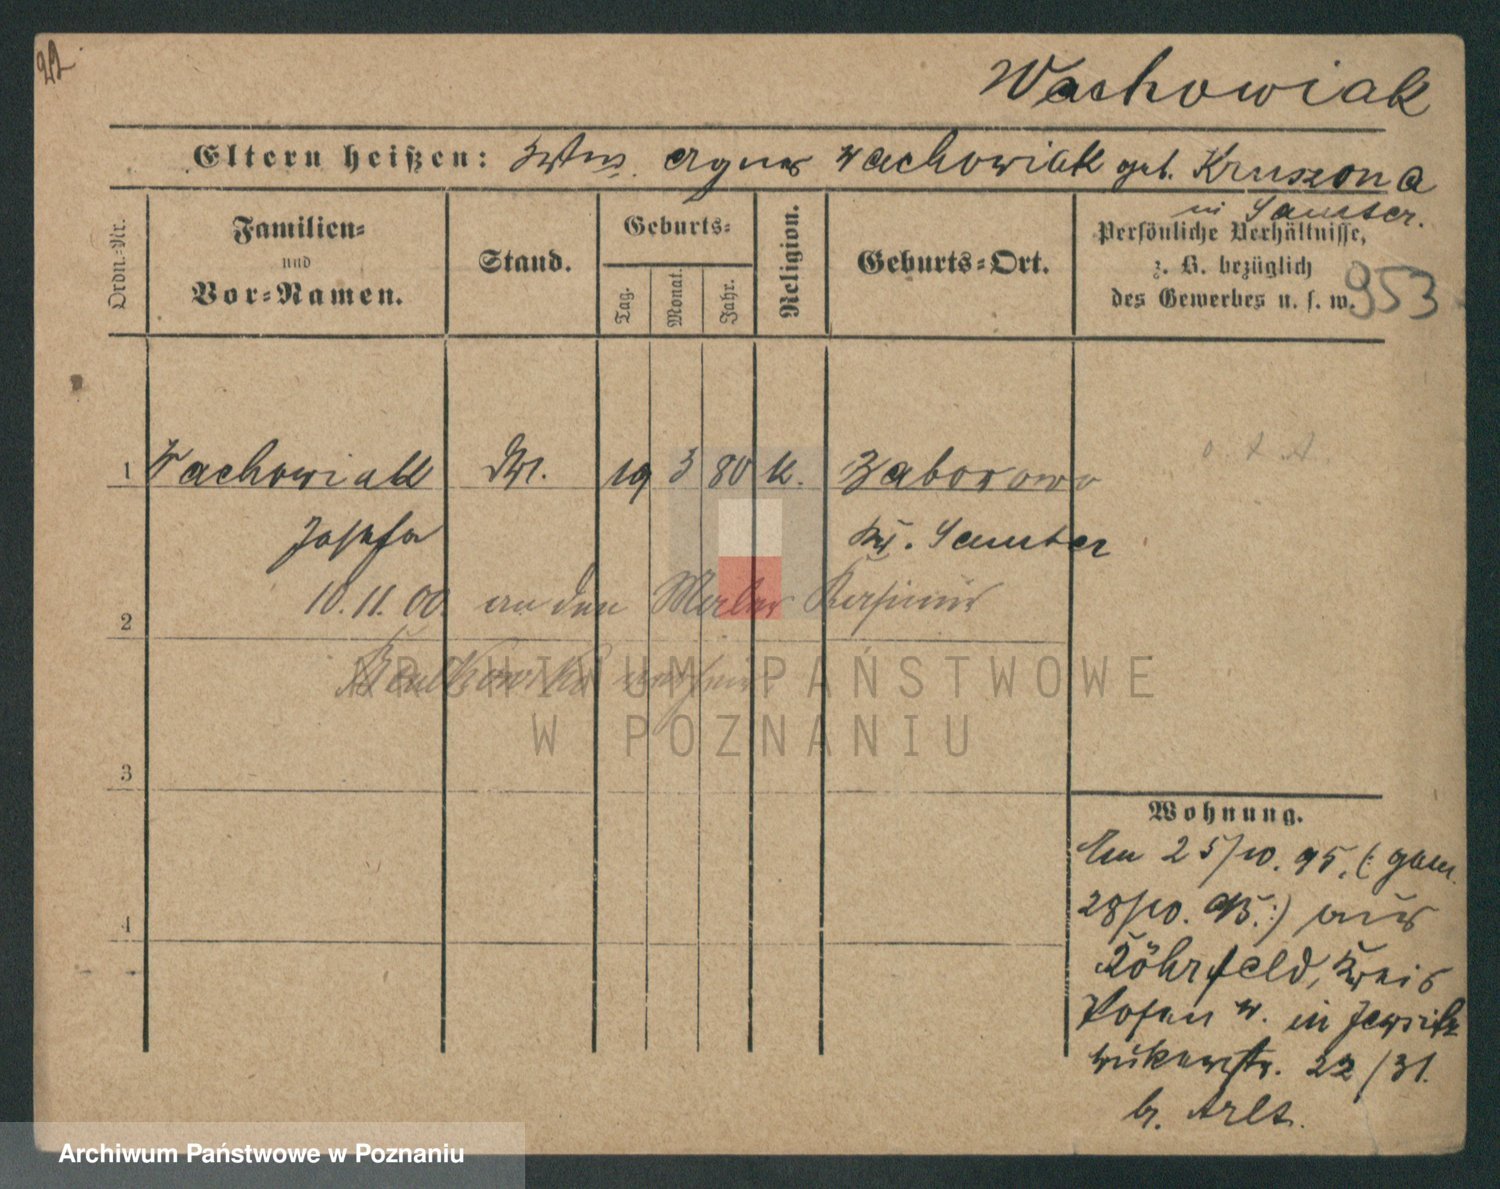 22
Wachowiak
Eltern heißen: Agnes Wachowiak geb. Kruszona
in Samter.
Ordn.-Nr.
Familien-
und
Vor-Namen.
Stand.
Geburts-
Tag.
Monat.
Jahr.
Religion.
Geburts-Ort.
Persönliche Verhältnisse,
z. B. bezüglich
des Gewerbes u. s. w.
953
1 Wachowiak 19 3 80 k. Zaborowo
Josefa Kr. Samter
10.11.00. an den Maler
2
ARCHIWUM PAŃSTWOWE
W POZNANIU
3
Wohnung.
25/10. 95. (: gem.
4
28/10. 95. :) aus
Kreis
Posen W. in Jersitz
22/31.
b. Arlt.
Archiwum Państwowe w Poznaniu